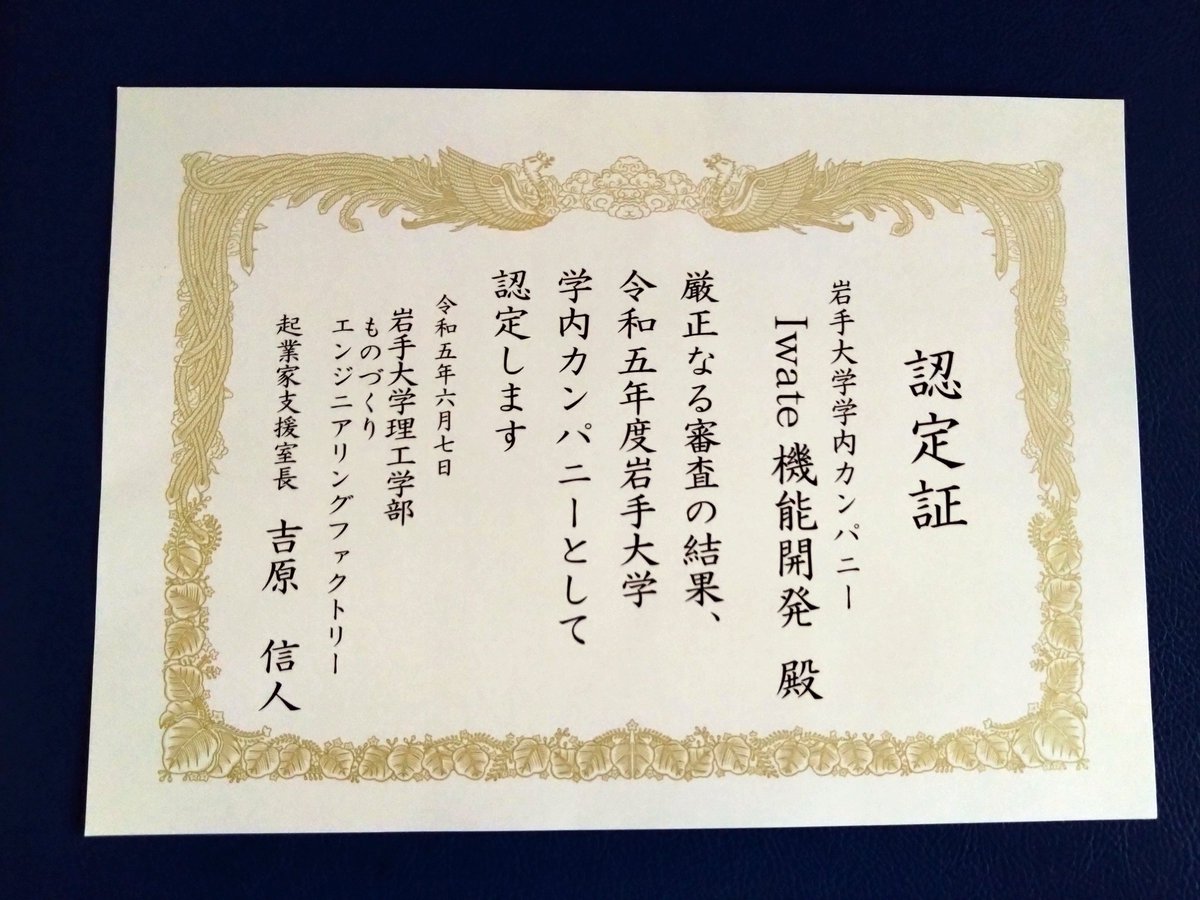 認定証
岩手大学学内カンパニー
Iwate 機能開発 殿
厳正なる審査の結果、
令和五年度岩手大学
学内カンパニーとして
認定します
令和五年六月七日
岩手大学理工学部
ものづくり
エンジニアリングファクトリー
起業家支援室長 吉原 信人